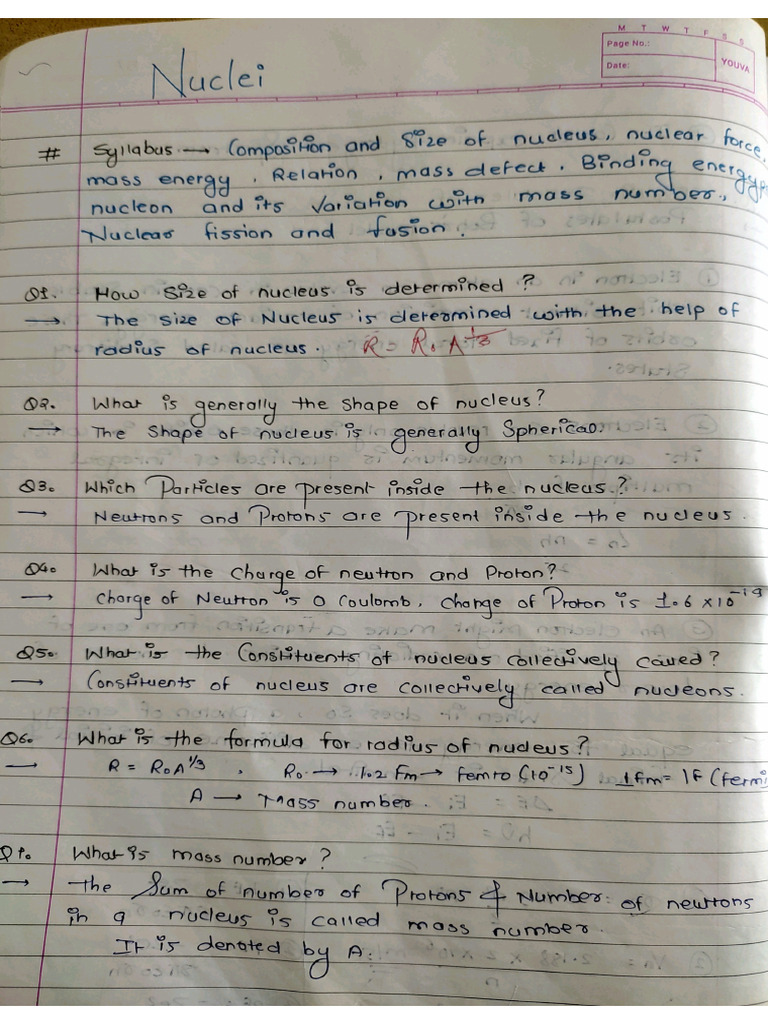 M T W T F S S
Page No.:
Date:
YOUVA
Nuclei
# Syllabus → Composition and Size of nucleus, nuclear force,
mass energy, Relation, mass defect. Binding energy
nucleon and its Variation with mass number,
Nuclear fission and fusion.
Q1. How Size of nucleus is determined?
→ The Size of Nucleus is determined with the help of
radius of nucleus. R = R₀ A^1/3
Q2. What is generally the Shape of nucleus?
→ The Shape of nucleus is generally Spherical.
Q3. Which Particles are present inside the nucleus?
→ Neutrons and Protons are present inside the nucleus.
Q4. What is the Charge of neutron and Proton?
→ Charge of Neutron is 0 Coulomb. Charge of Proton is 1.6 × 10^-19
Q5. What is the Constituents of nucleus collectively called?
→ Constituents of nucleus are collectively called nucleons.
Q6. What is the formula for radius of nucleus?
→ R = R₀A^1/3, R₀ → 1.2 Fm → femto (10^-15) 1fm = 1F (fermi
A → Mass number.
Q7. What is mass number?
→ the Sum of number of Protons & Number of neutrons
in a nucleus is called mass number.
It is denoted by A.